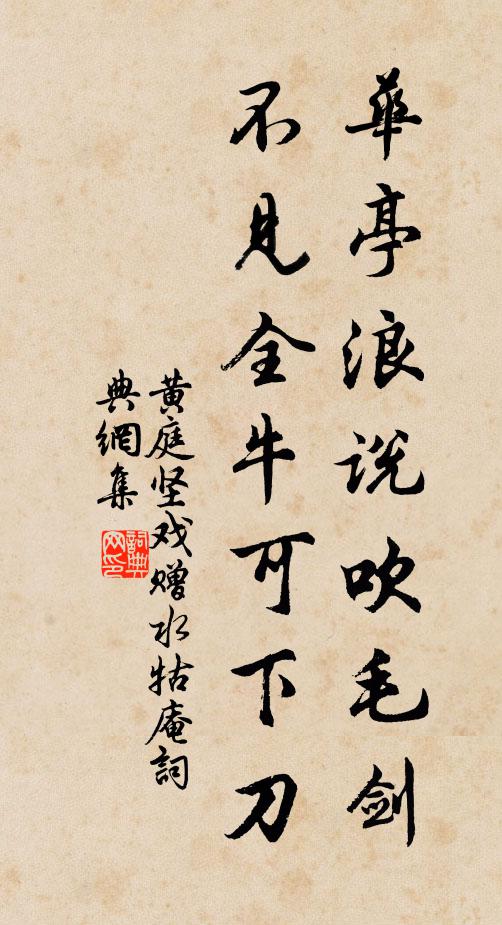 華亭浪说吹毛剑
不见全牛可下刀
黄庭坚戏赠水牯庵詞
典網集
詞典
网印